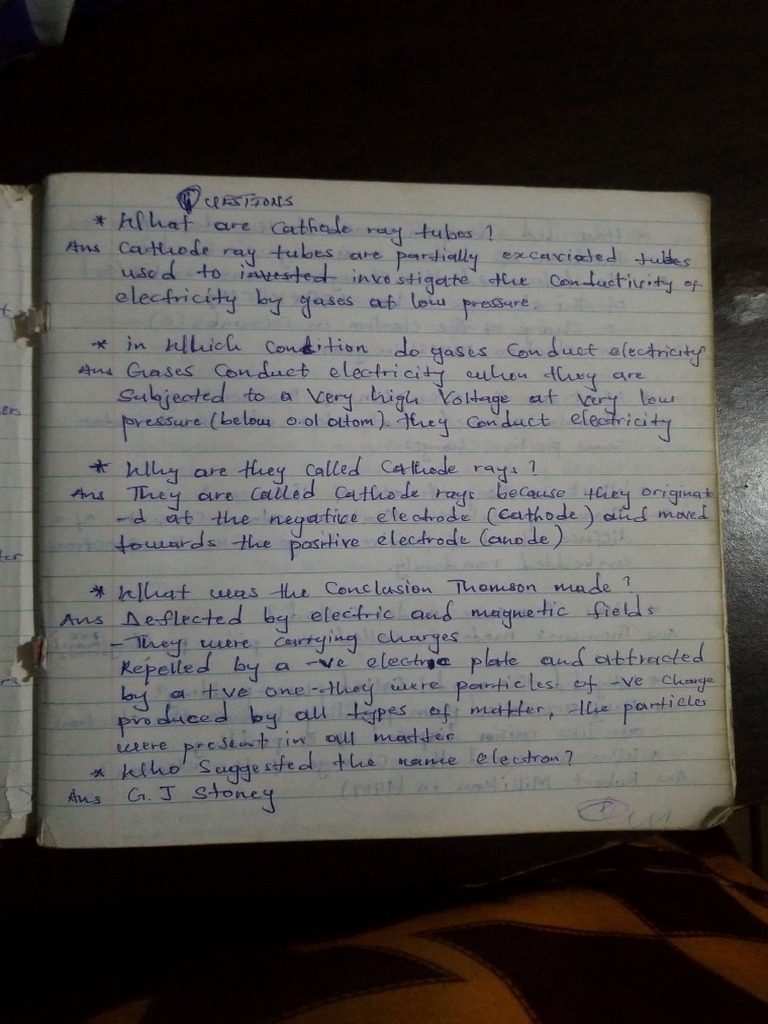 QUESTIONS
* What are cathode ray tubes?
Ans Cathode ray tubes are partially excaviated tubes
used to invested investigate the conductivity of
electricity by gases at low pressure.
* in which condition do gases conduct electricity
Ans Gases conduct electricity when they are
subjected to a very high voltage at very low
pressure (below 0.01 atom). they conduct electricity
* Why are they called Cathode rays?
Ans They are called Cathode rays because they originat
-d at the negative electrode (cathode) and moved
towards the positive electrode (anode)
* What was the Conclusion Thomson made?
Ans Deflected by electric and magnetic fields
- They were carrying charges
Repelled by a -ve electric plate and attracted
by a +ve one - they were particles of -ve charge
produced by all types of matter, the particles
were present in all matter
* Who suggested the name electron?
Ans G. J Stoney